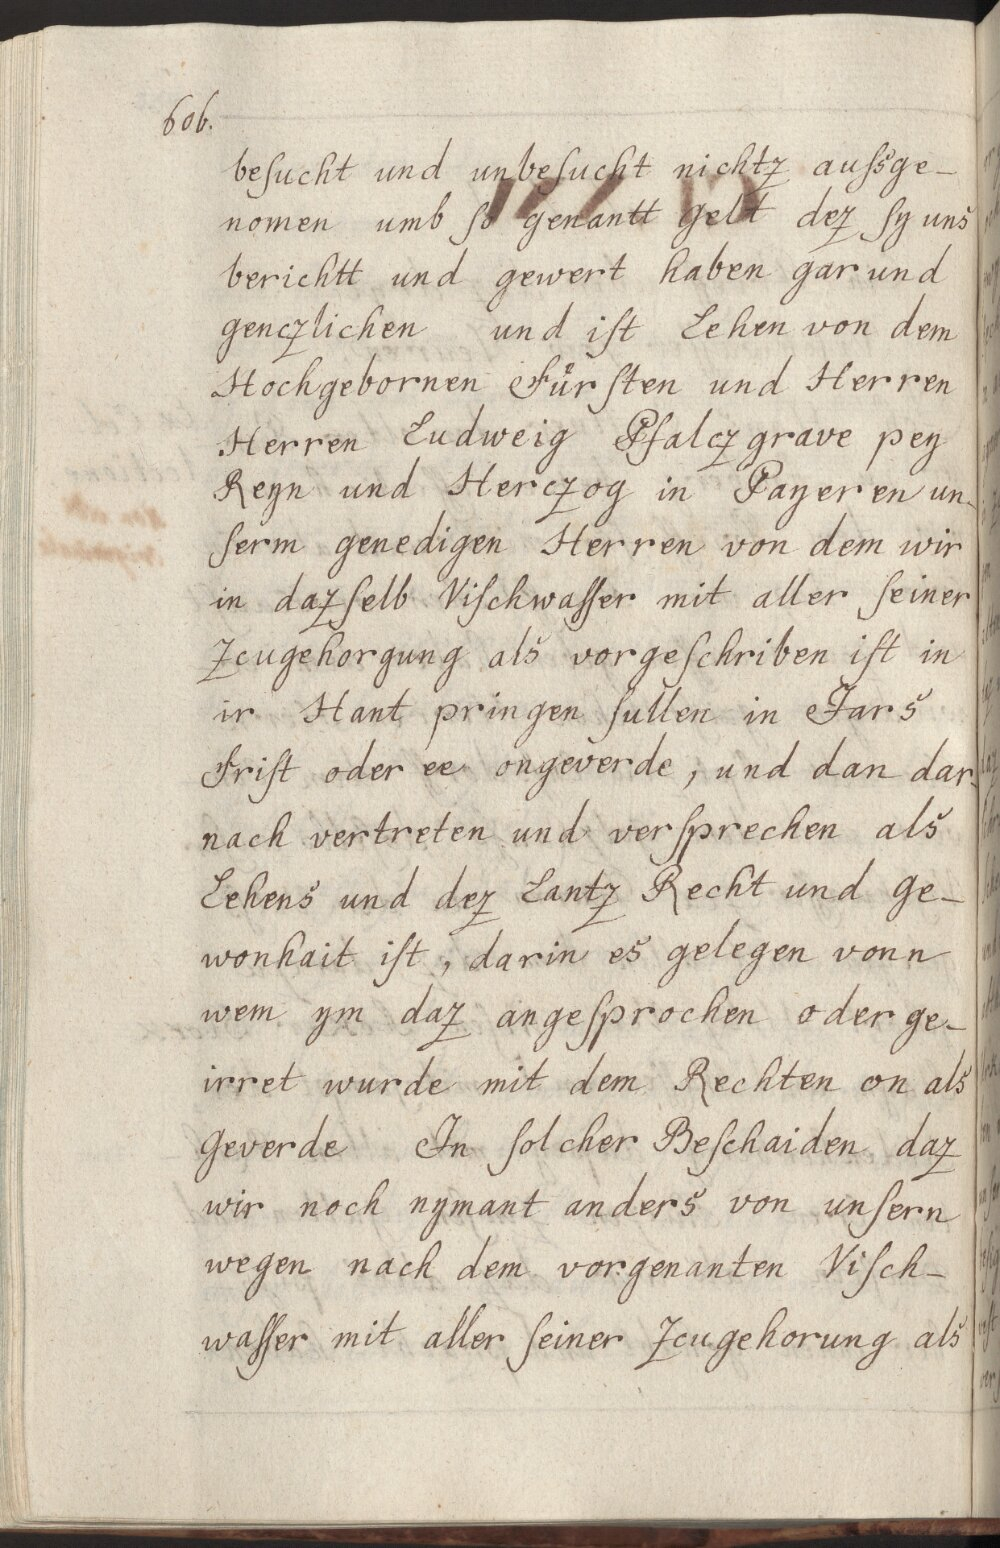 606.
besucht und unbesucht nichtz aussge-
nomen umb so genantt gelt dez sy uns
berichtt und gewert haben gar und
genczlichen und ist Lehen von dem
Hochgebornen Fürsten und Herren
Herren Ludweig Pfalczgrave pey
Reyn und Herczog in Payeren un-
serm genedigen Herren von dem wir
in dazselb Vischwasser mit aller seiner
Zcugehorgung als vorgeschriben ist in
ir Hant pringen sullen in Jars
Frist oder ee ongeverde, und dan dar-
nach vertreten und versprechen als
Lehens und dez Lantz Recht und ge-
wonhait ist, darin es gelegen vonn
wem ym daz angesprochen oder ge-
irret wurde mit dem Rechten on als
Geverde In solcher Beschaiden daz
wir noch nymant anders von unsern
wegen nach dem vorgenanten Visch-
wasser mit aller seiner Zcugehorung als